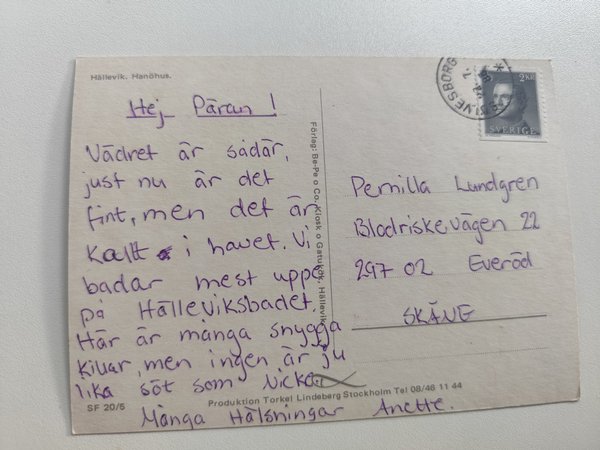 Hällevik. Hanöhus.
Hej Päran!
Vädret är sådär,
just nu är det
fint, men det är
Kallt i havet. Vi
badar mest uppe
på Hälleviksbadet.
Här är många snygga
Killar, men ingen är ju
lika söt som Nicke.
Många Hälsningar Anette.
SF 20/5
Produktion Torkel Lindeberg Stockholm Tel 08/46 11 44
Förlag: Be-Pe o Co, Kiosk o Gatukök, Hällevik
SÖLVESBORG
2 KR
SVERIGE
Pernilla Lundgren
Blodriskevägen 22
297 02 Everöd
SKÅNE